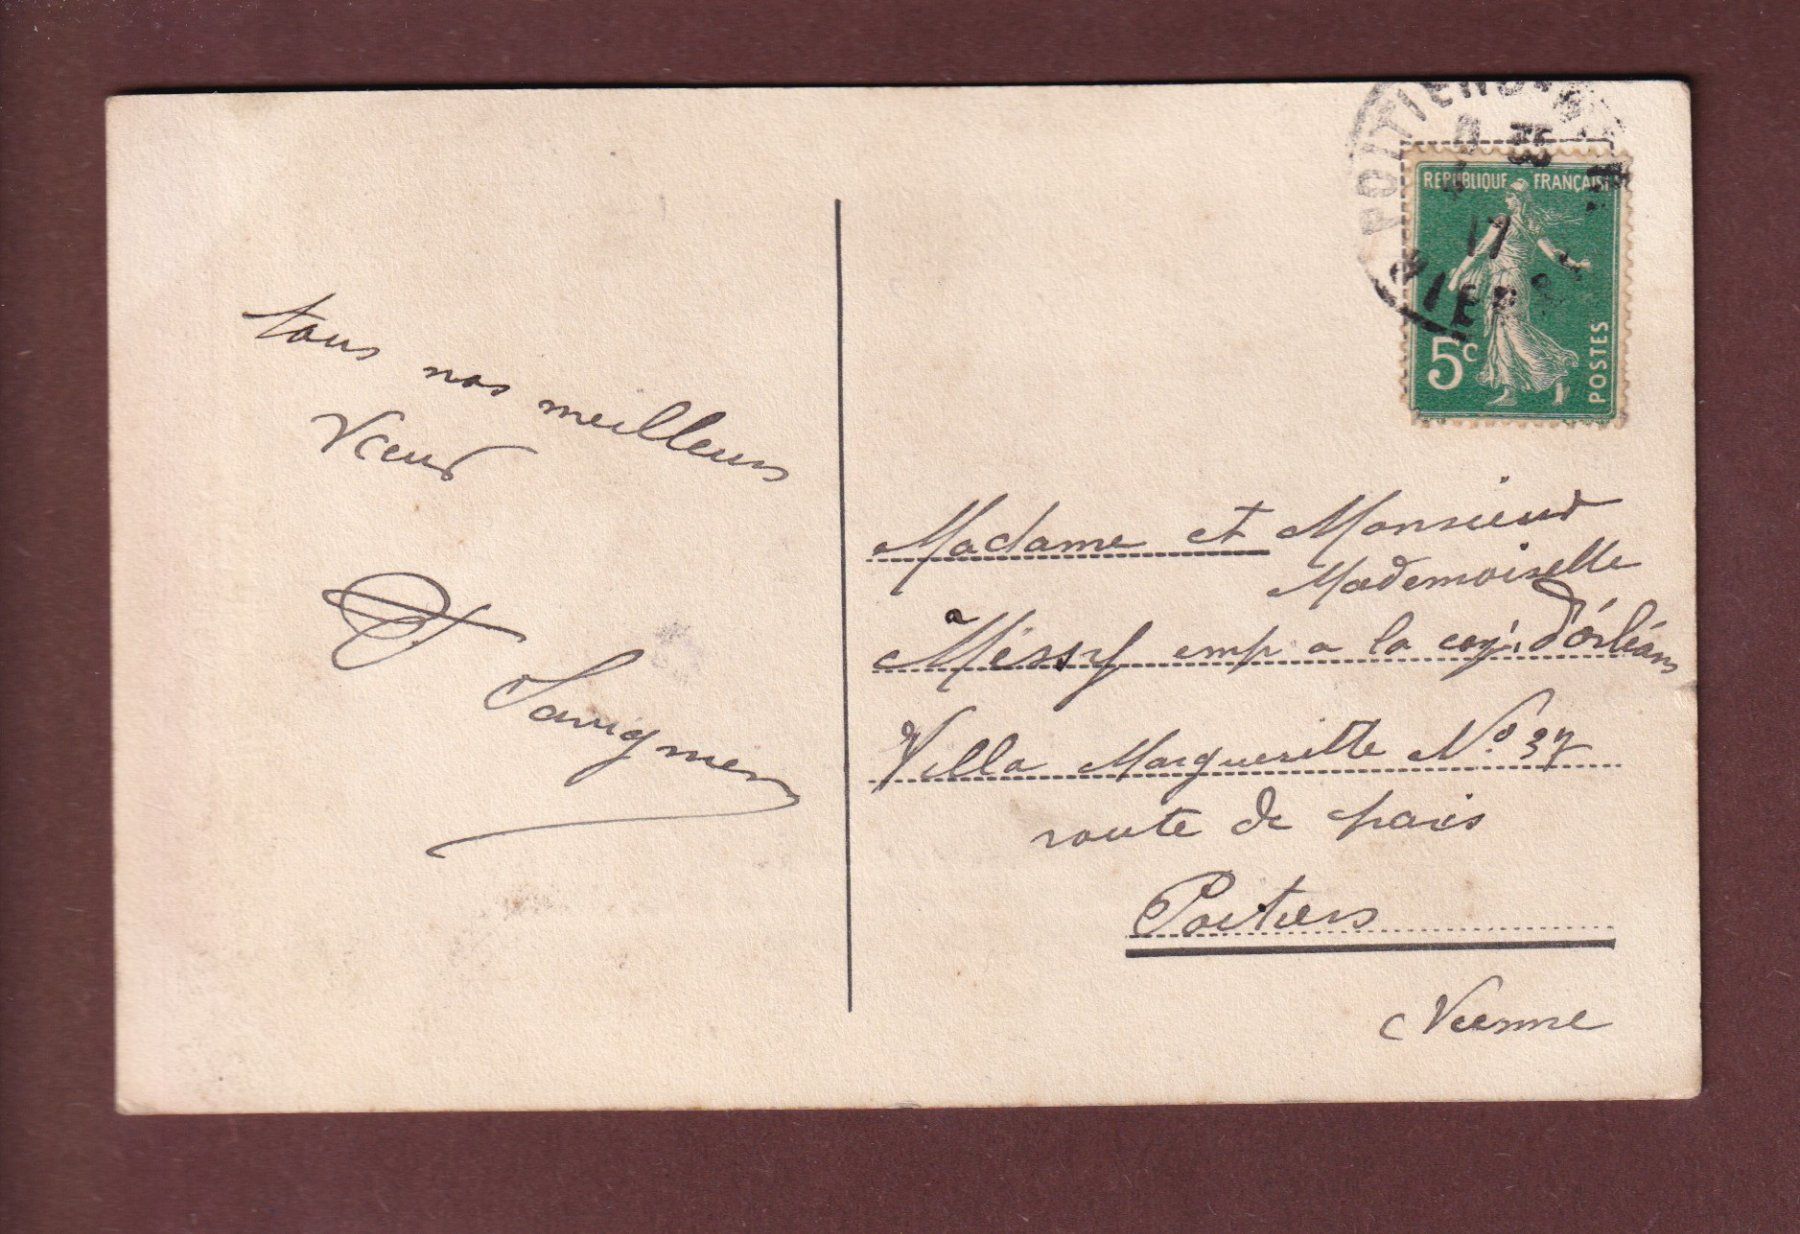 tous nos meilleurs
Vœux
Savigner
POITIERS
17
VIENNE
REPUBLIQUE FRANÇAISE
5c
POSTES
Madame et Monsieur
Mademoiselle
Méssy emp a la cog. d'Orléans
Villa Margueritte No 37
route de paris
Poitiers
Vienne